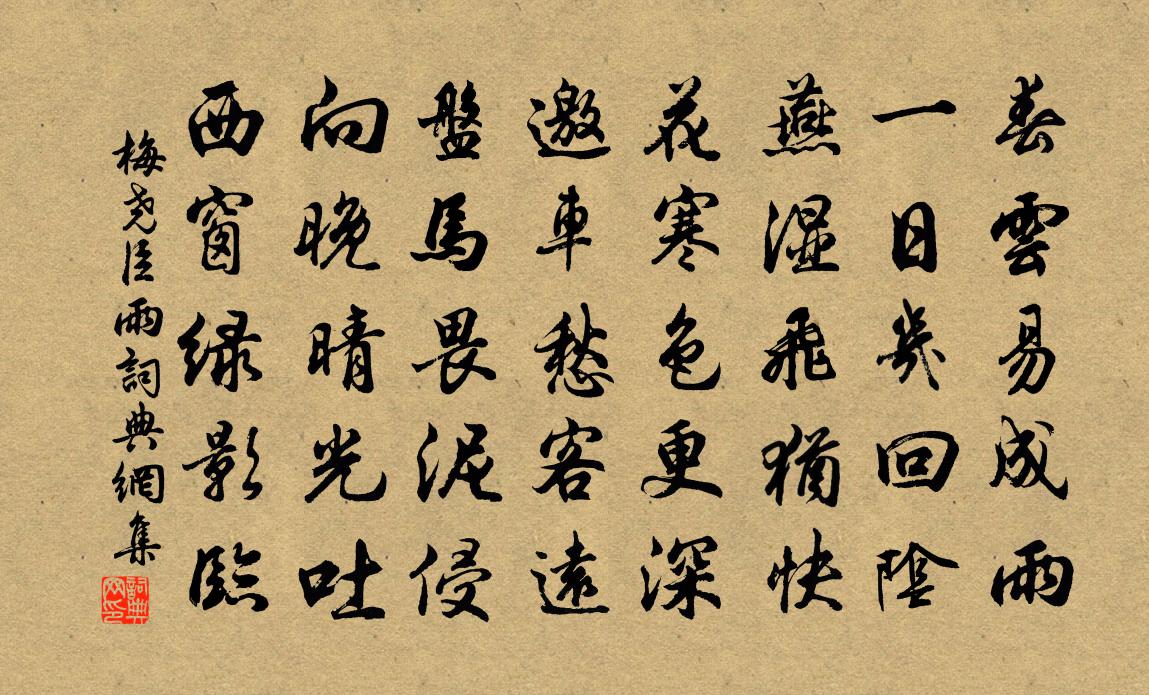 春雲易成雨
一日幾回陰
燕濕飛猶快
花寒色更深
邀車愁客遠
盤馬畏泥侵
向晚晴光吐
西窗绿影臨
梅堯臣雨詞典網集
詞典網印